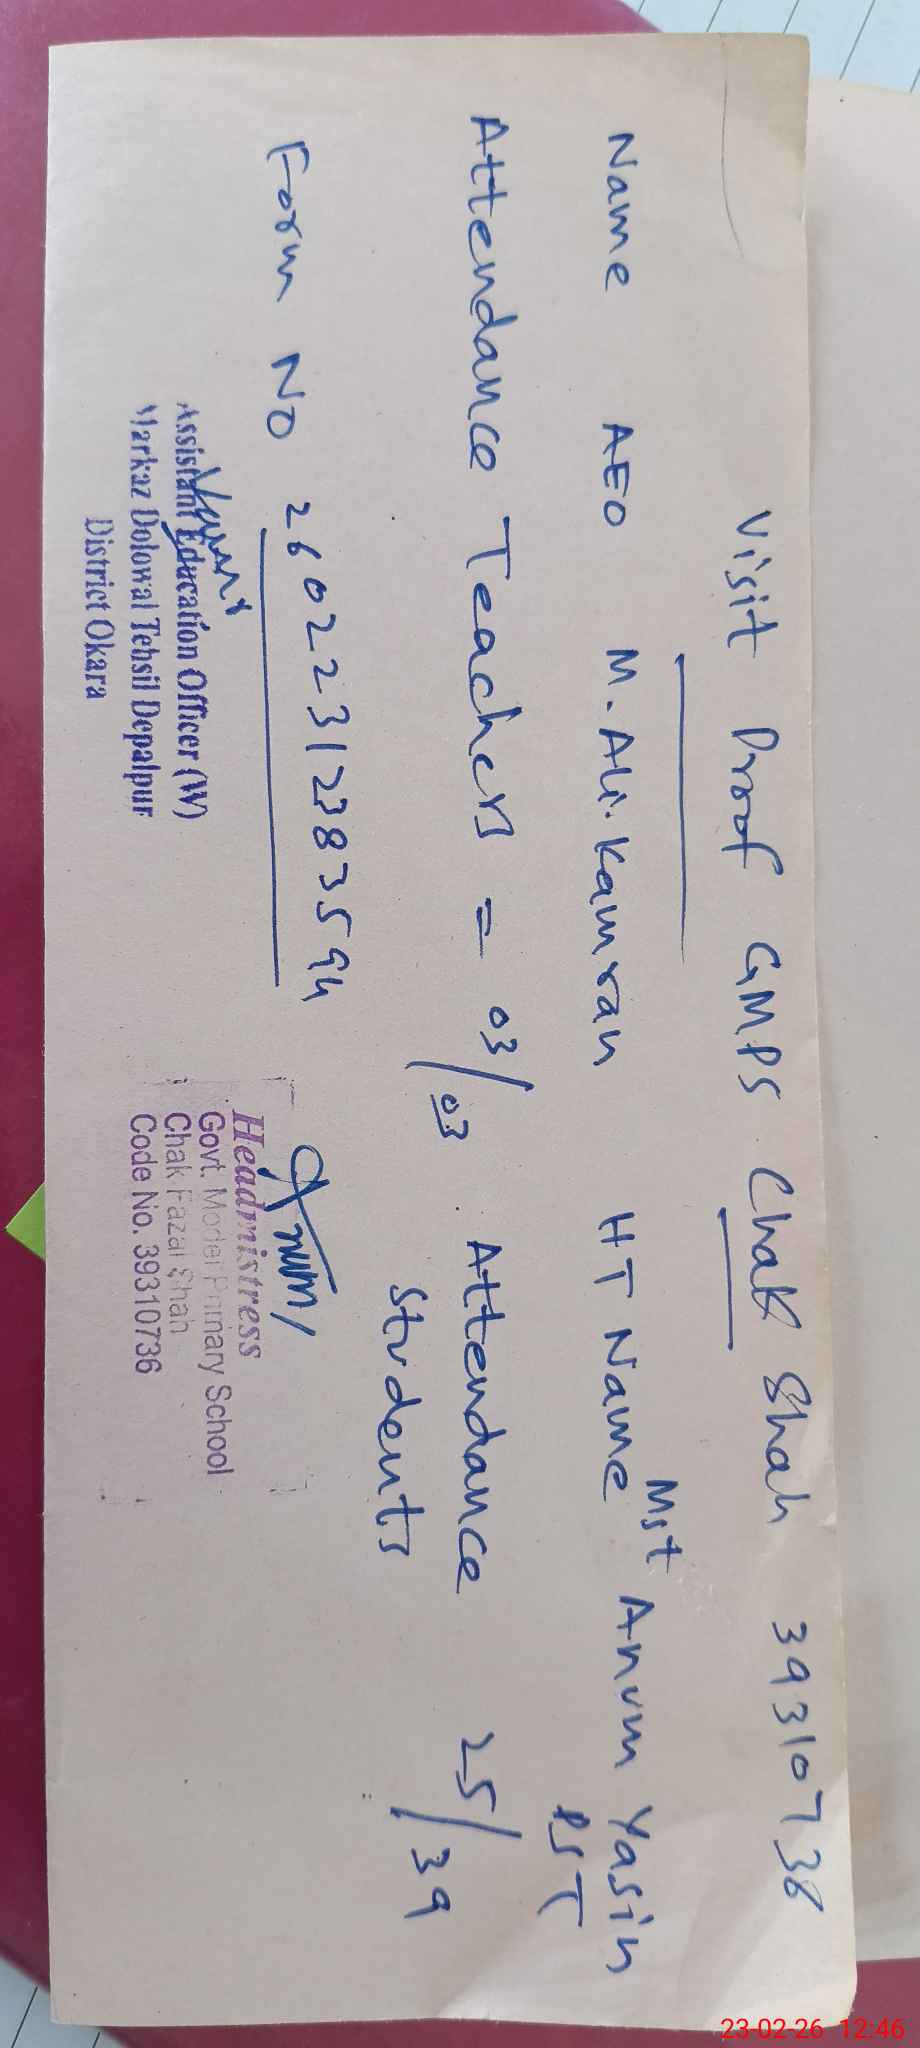 Visit Proof GMPS Chak Shah 39310738
Name AEO M. Ali Kamran HT Name Mst Anum Yasin
PST
Attendance Teachers = 03/03 Attendance 25/39
Students
Form No 26022312383594
Assistant Education Officer (W)
Markaz Dolowal Tehsil Depalpur
District Okara
Anum
Headmistress
Govt. Model Primary School
Chak Fazal Shah
Code No. 39310736
23-02-26 12:46